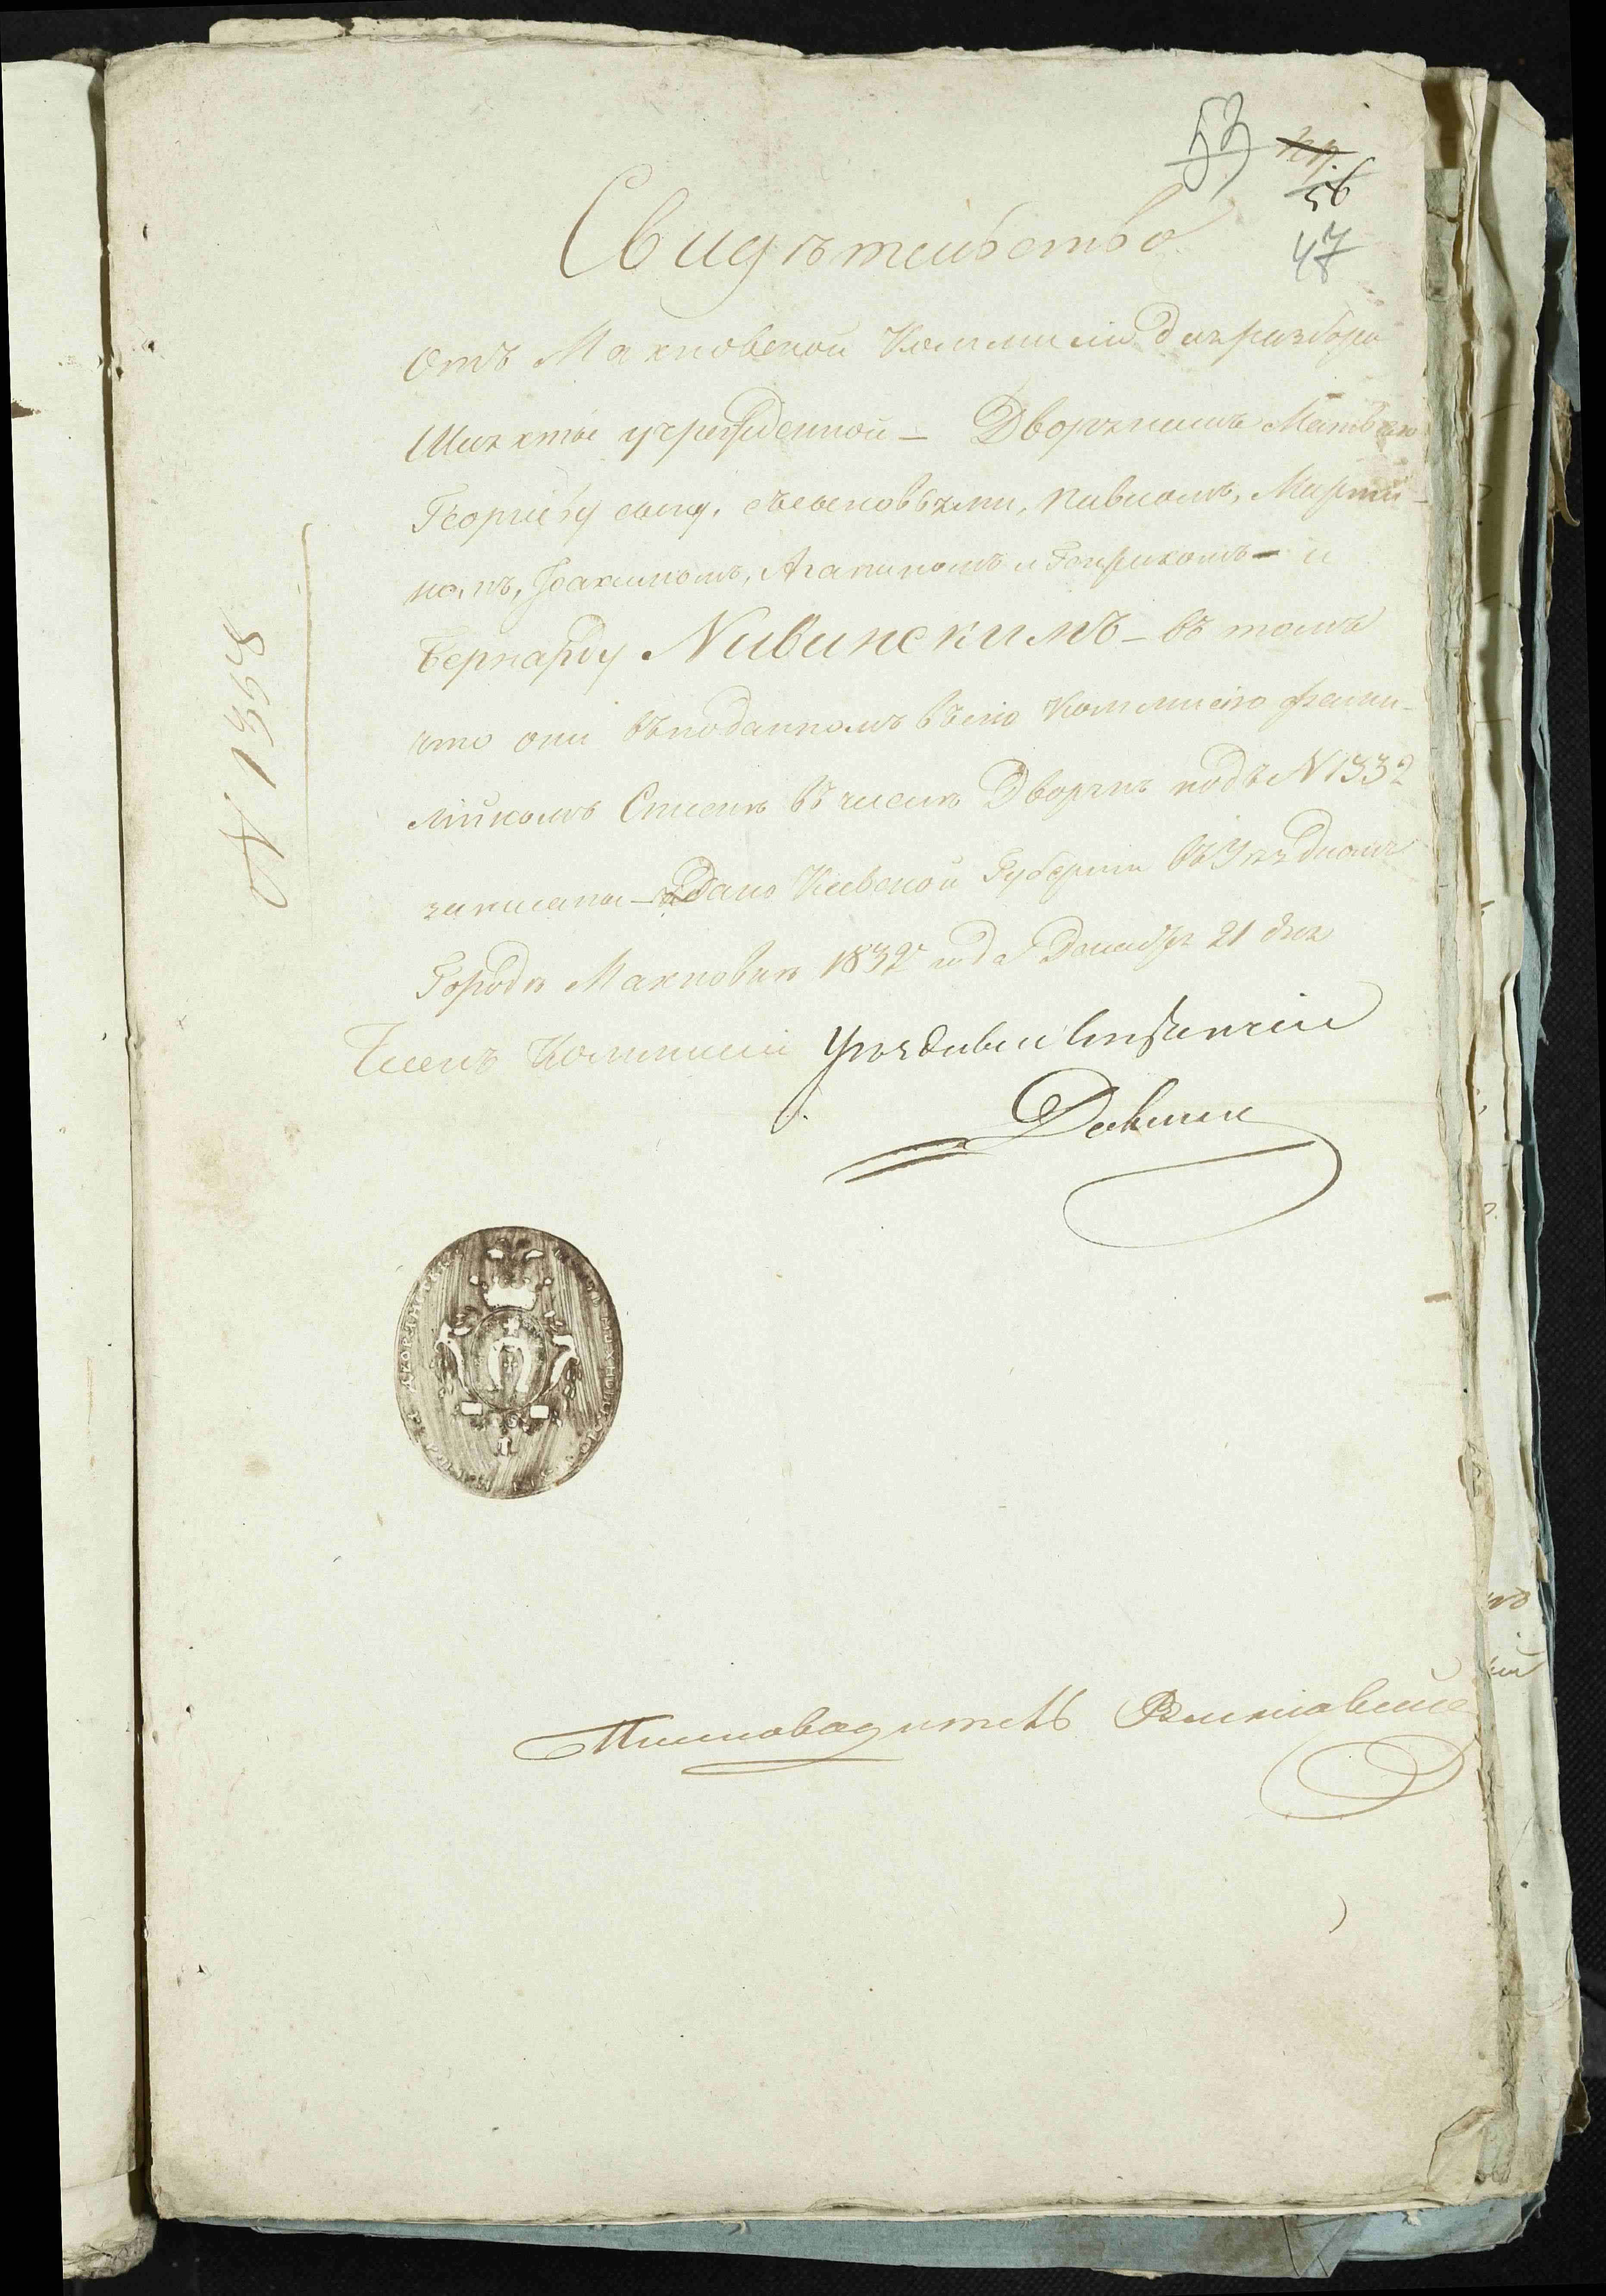 53
56
47
Свидѣтельство
Отъ Махновской Коммисіи для разбора
Шляхты учрежденной – Дворянамъ Матвѣю
Георгіеву сыну, съ сыновьями, Павломъ, Марти-
номъ, Іоакимомъ, Агапиномъ и Генрихомъ – и
Бернарду Нивинскимъ – въ томъ
что они въ поданномъ въ сію Коммисію фами-
лійномъ Спискѣ въ числѣ Дворянъ подъ N 1332
записаны – Дано Кіевской Губерніи въ Уѣздномъ
Городѣ Махновкѣ 1832 года Декабря 21 дня
Членъ Коммисіи Уѣздный
N 1558
Письмоводитель